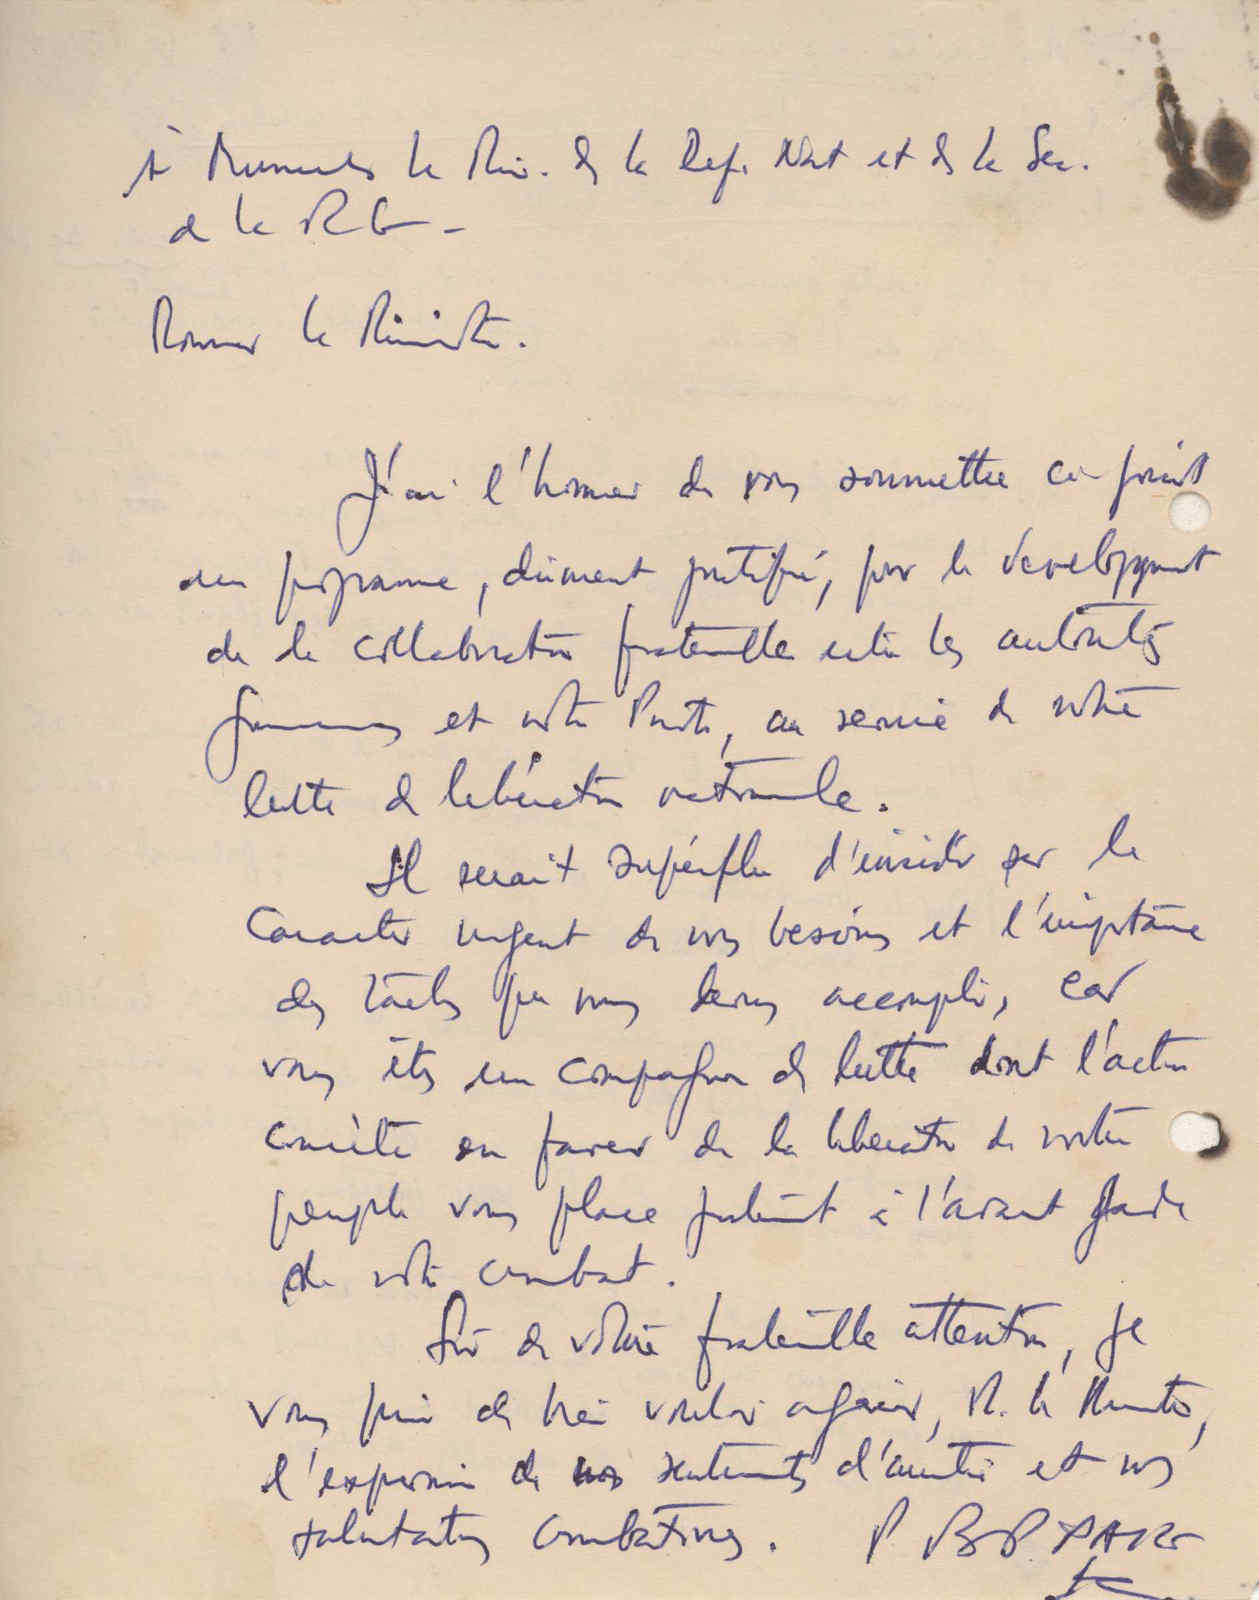 à Monsieur le Min. de la Def. Nat et de la Sec.
de la RG -
Monsieur le Ministre.
J'ai l'honneur de vous soumettre ci-joint
un programme, dûment justifié, pour le développement
de la collaboration fraternelle entre les autorités
guinéennes et notre Parti, au service de notre
lutte de libération nationale.
Il serait superflu d'insister sur le
caractère urgent de nos besoins et l'importance
des tâches que nous devons accomplir, car
vous êtes un compagnon de lutte dont l'action
concrète en faveur de la libération de notre
peuple vous place justement à l'avant garde
de notre combat.
Sûr de votre fraternelle attention, je
vous prie de bien vouloir agréer, M. le Ministre,
l'expression de nos sentiments d'amitié et nos
salutations combatives. P BP PAIGC